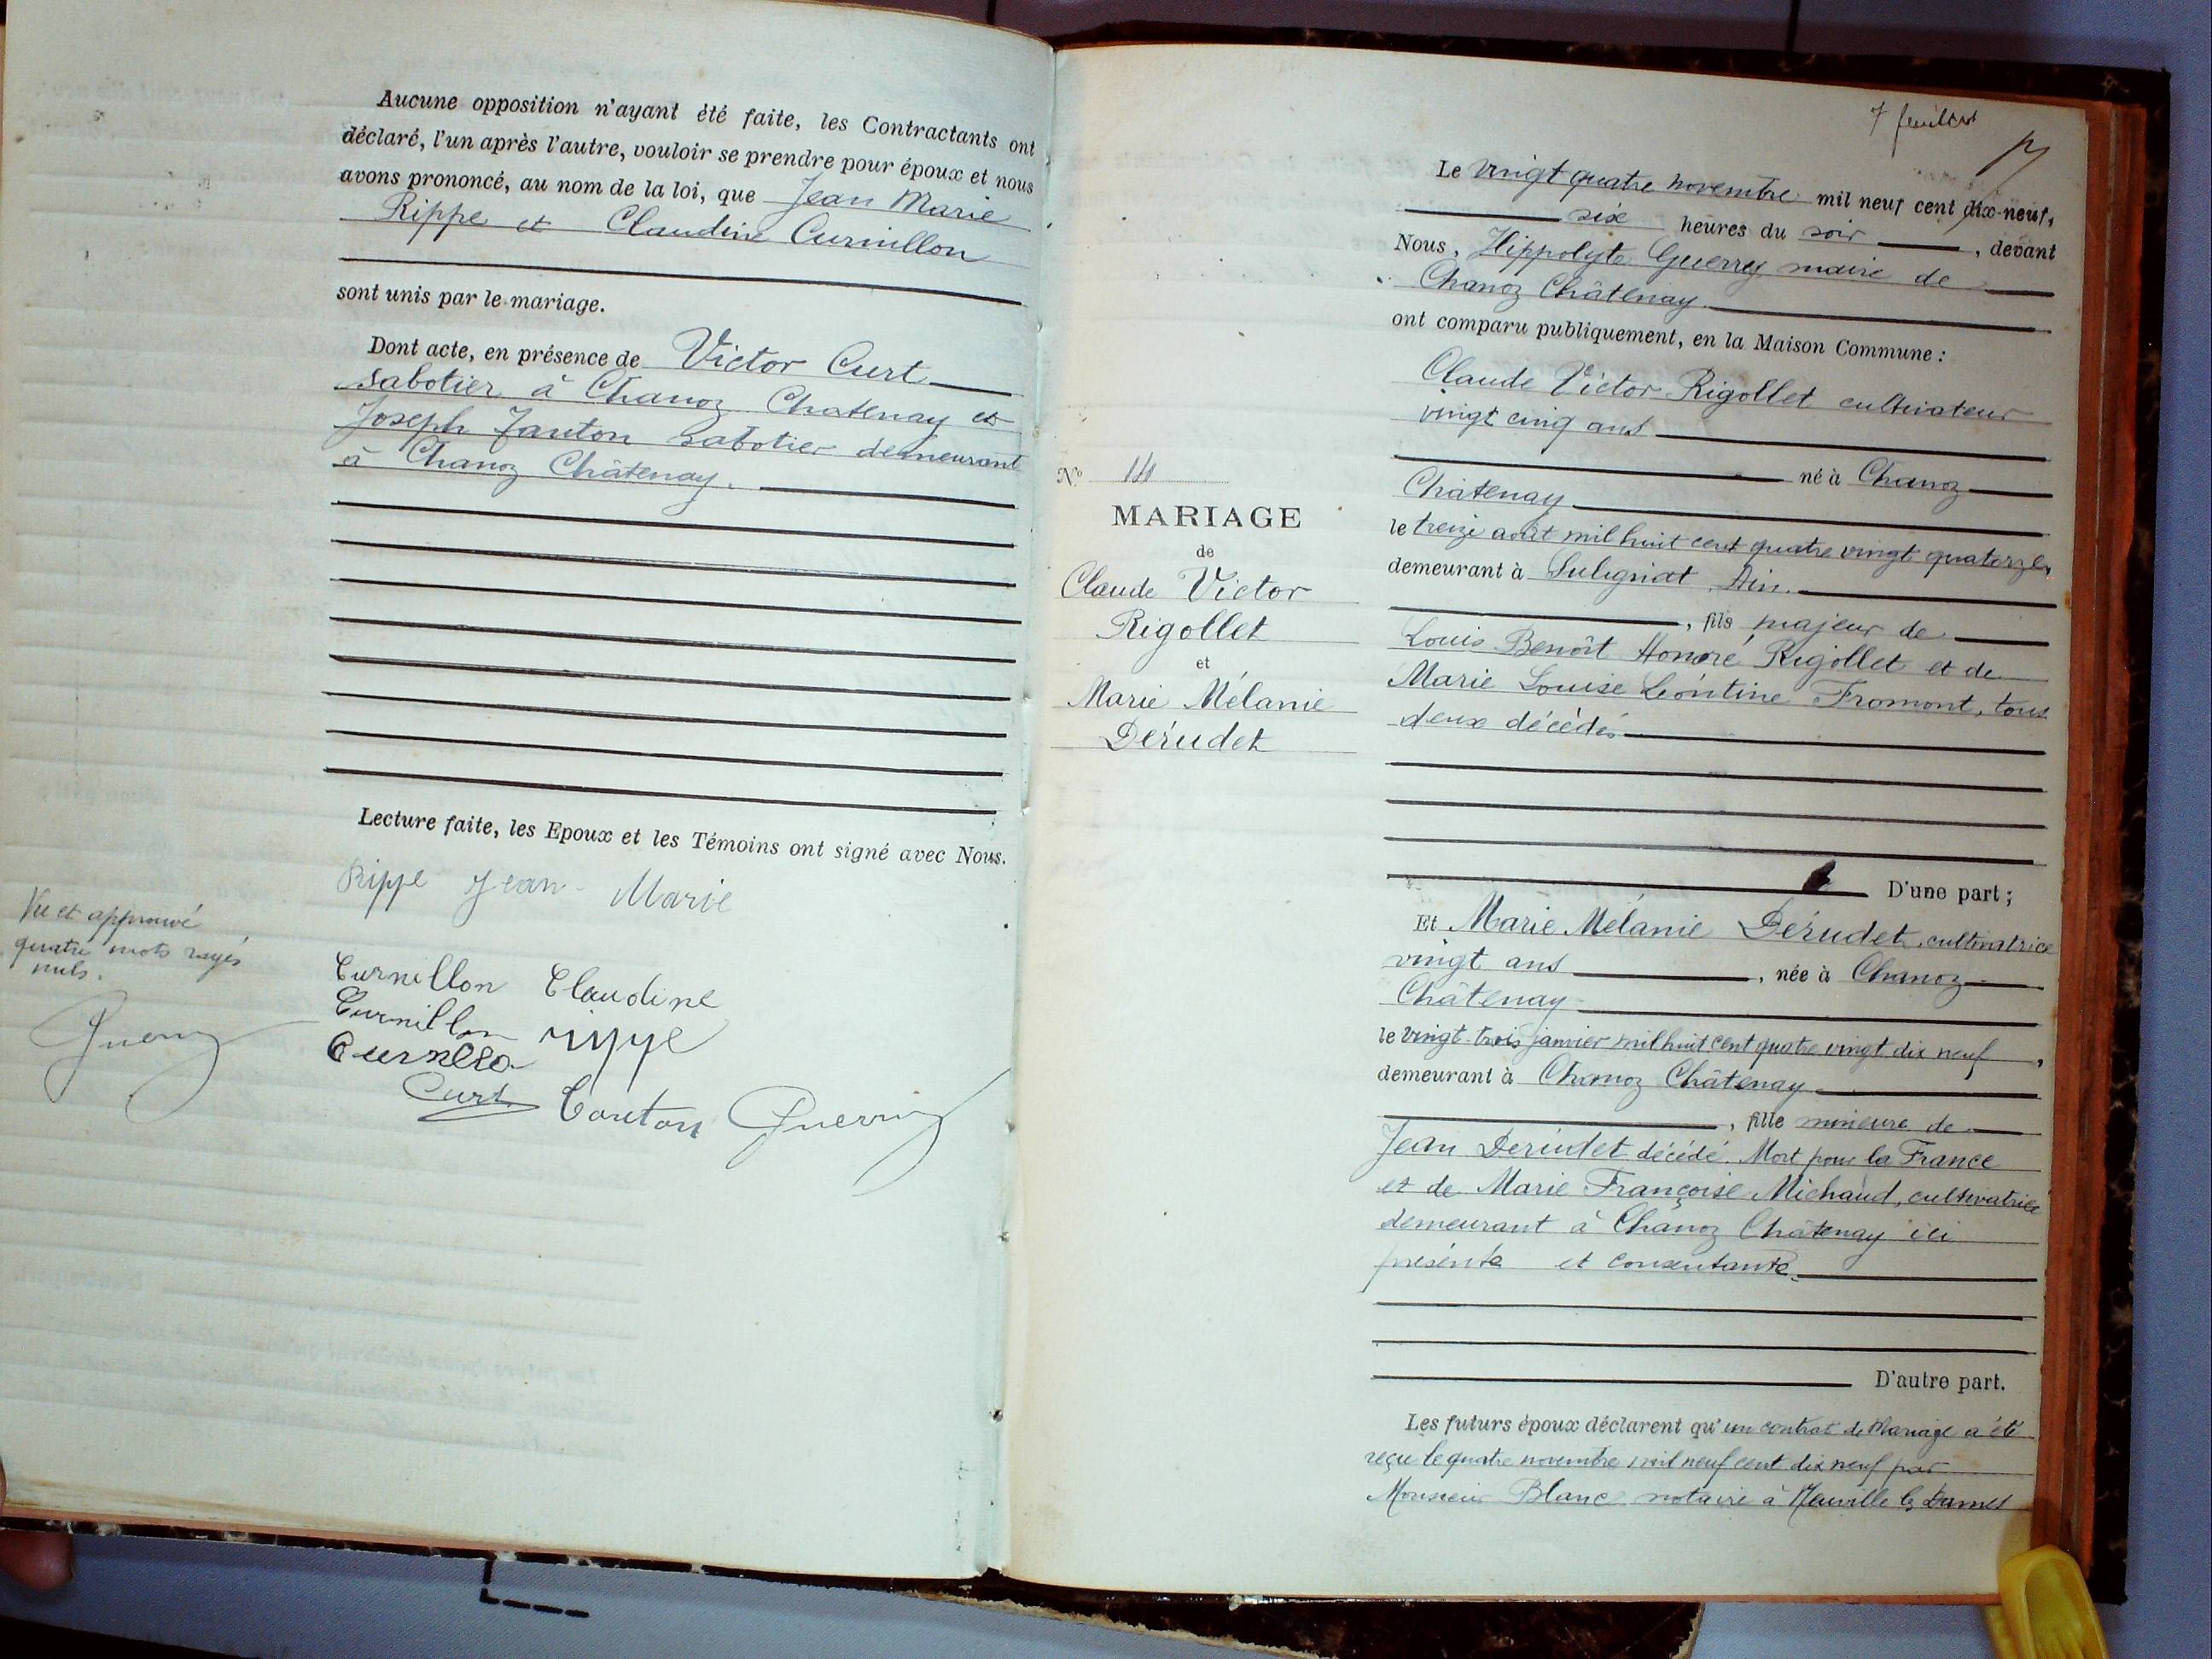 Aucune opposition n'ayant été faite, les Contractants ont
déclaré, l'un après l'autre, vouloir se prendre pour époux et nous
avons prononcé, au nom de la loi, que Jean Marie
Rippe et Claudine Curnillon
sont unis par le mariage.
Dont acte, en présence de Victor Curt
sabotier à Chanoz Chatenay et
Joseph Janton sabotier demeurant
à Chanoz Châtenay.
Lecture faite, les Epoux et les Témoins ont signé avec Nous.
Rippe Jean-Marie
Vu et approuvé
quatre mots rayés
nuls.
Guerry
Curnillon Claudine
Curnillon rippe
Curt Guerry
7 feuillet
Le vingt quatre novembre mil neuf cent dix-neuf,
six heures du soir, devant
Nous, Hippolyte Guerrey maire de
Chanoz Châtenay
ont comparu publiquement, en la Maison Commune :
Claude Victor Rigollet cultivateur
vingt cinq ans
né à Chanoz
Châtenay
le treize août mil huit cent quatre vingt quatorze,
demeurant à Sulignat Ain.
, fils majeur de
Louis Benoît Honoré Rigollet et de
Marie Louise Léontine Fromont, tous
deux décédés
D'une part ;
Et Marie Mélanie Dérudet, cultivatrice
vingt ans, née à Chanoz
Châtenay
le vingt-trois janvier mil huit cent quatre vingt dix neuf,
demeurant à Chanoz Châtenay
, fille mineure de
Jean Derudet décédé. Mort pour la France
et de Marie Françoise Michaud, cultivatrice
demeurant à Chanoz Châtenay ici
présente et consentante.
D'autre part.
Les futurs époux déclarent qu'un contrat de Mariage a été
reçu le quatre novembre mil neuf cent dix neuf par
Monsieur Blanc notaire à Neuville les Dames
N°
MARIAGE
de
Claude Victor
Rigollet
et
Marie Mélanie
Dérudet